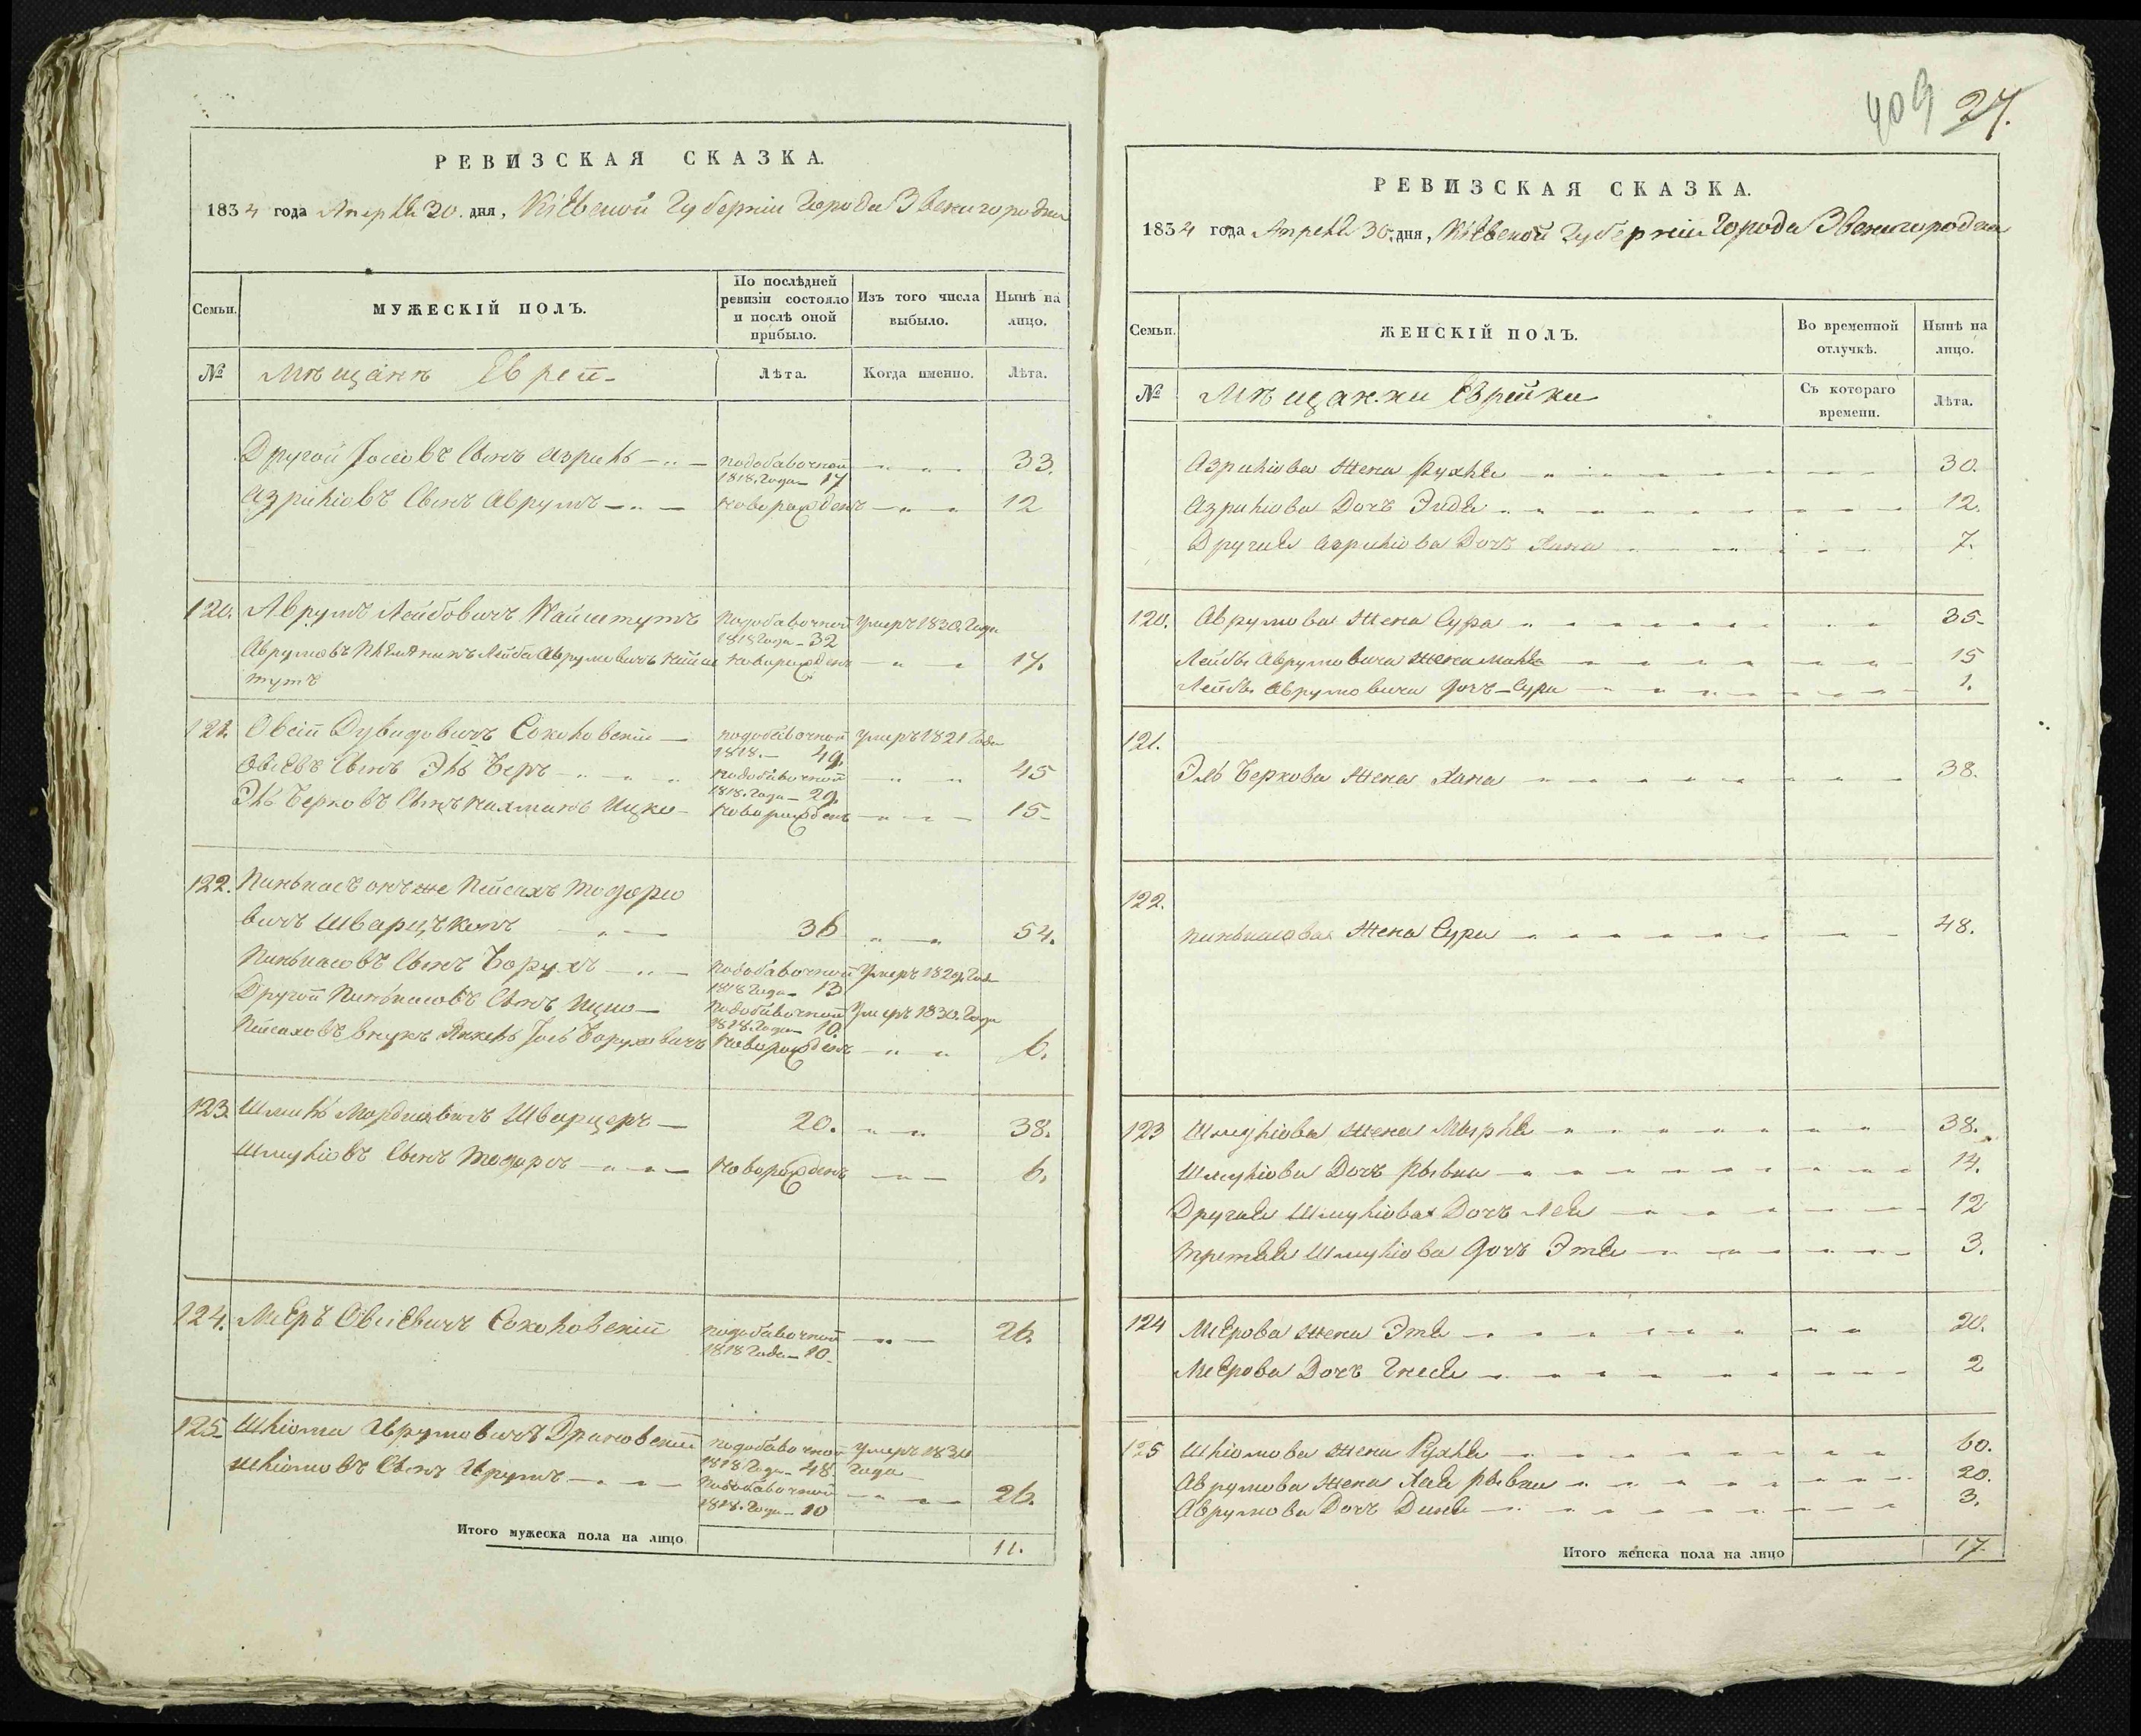 РЕВИЗСКАЯ СКАЗКА.
1834 года Апреля 30. дня, Кіевской Губерніи Города Звенигородки
Семьи.
МУЖЕСКІЙ ПОЛЪ.
По послѣдней ревизіи состояло и послѣ оной прибыло.
Изъ того числа выбыло.
Нынѣ на лицо.
№
Мѣщанъ Евреи
Лѣта.
Когда именно.
Лѣта.
Другой Іосіовъ Сынъ Азриль подобавочной 1818. Года 17 33.
Азриліовъ Сынъ Аврумъ новорожденъ 12
120. Аврумъ Лейбовичъ Кайштутъ подобавочной 1818 Года 32 Умеръ 1830. Года
Аврумовъ Племяникъ Лейба Аврумовичъ Кайш новорожденъ 17.
тутъ
121. Овсій Дувидовичъ Соколовскій подобавочной 1818. 49. Умеръ 1821 Года
Овсіевъ Сынъ Эль Беръ подобавочной 1818. Года 29. 45
Эль Берковъ Сынъ Нахманъ Ицко новорожденъ 15
122. Пиньхасъ онъ же Пейсахъ Тодоро
вичъ Шварцъ 36 54.
Пиньхасовъ Сынъ Борухъ подобавочной 1818 Года 13 Умеръ 1829. Года
Другой Пиньхасовъ Сынъ Ицко подобавочной 1818. Года 10. Умеръ 1830. Года
Пейсаховъ Внукъ Янкель Іось Боруховичъ новорожденъ 6.
123. Шмиль Мордковичъ Шварцеръ 20. 38.
Шмуліовъ Сынъ Тодоръ новорожденъ 6.
124. Мееръ Овсіевичъ Соколовскій подобавочной 1818 Года 10. 26.
125 Шліома Аврумовичъ Драновскій подобавочной 1818 Года 48. Умеръ 1834 Года
Шліомовъ Сынъ Аврумъ подобавочной 1818. Года 10 26.
Итого мужеска пола на лицо 11.
409 27.
РЕВИЗСКАЯ СКАЗКА.
1834 года Апреля 30. дня, Кіевской Губерніи Города Звенигородки
Семьи.
ЖЕНСКІЙ ПОЛЪ.
Во временной отлучкѣ.
Нынѣ на лицо.
№
Мѣщанки Еврейки
Съ котораго времени.
Лѣта.
Азриліова Жена Рухля 30.
Азриліова Дочъ Эидя 12.
Другая Азриліова Дочъ Хана 7.
120. Аврумова Жена Сура 35
Лейбы Аврумовича Жена Маля 15
Лейбы Аврумовича Дочъ Сура 1.
121.
Эль Беркова Жена Хана 38.
122.
Пиньхасова Жена Сура 48.
123 Шмуліова Жена Мырля 38.
Шмуліова Дочъ Рывка 14.
Другая Шмуліова Дочъ Лея 12
Третяя Шмуліова Дочъ Этя 3.
124 Меерова Жена Этя 20.
Меерова Дочъ Гнеся 2
125 Шліомова Жена Рухля 60.
Аврумова Жена Хая Рывка 20.
Аврумова Дочъ Диня 3.
Итого женска пола на лицо 17.